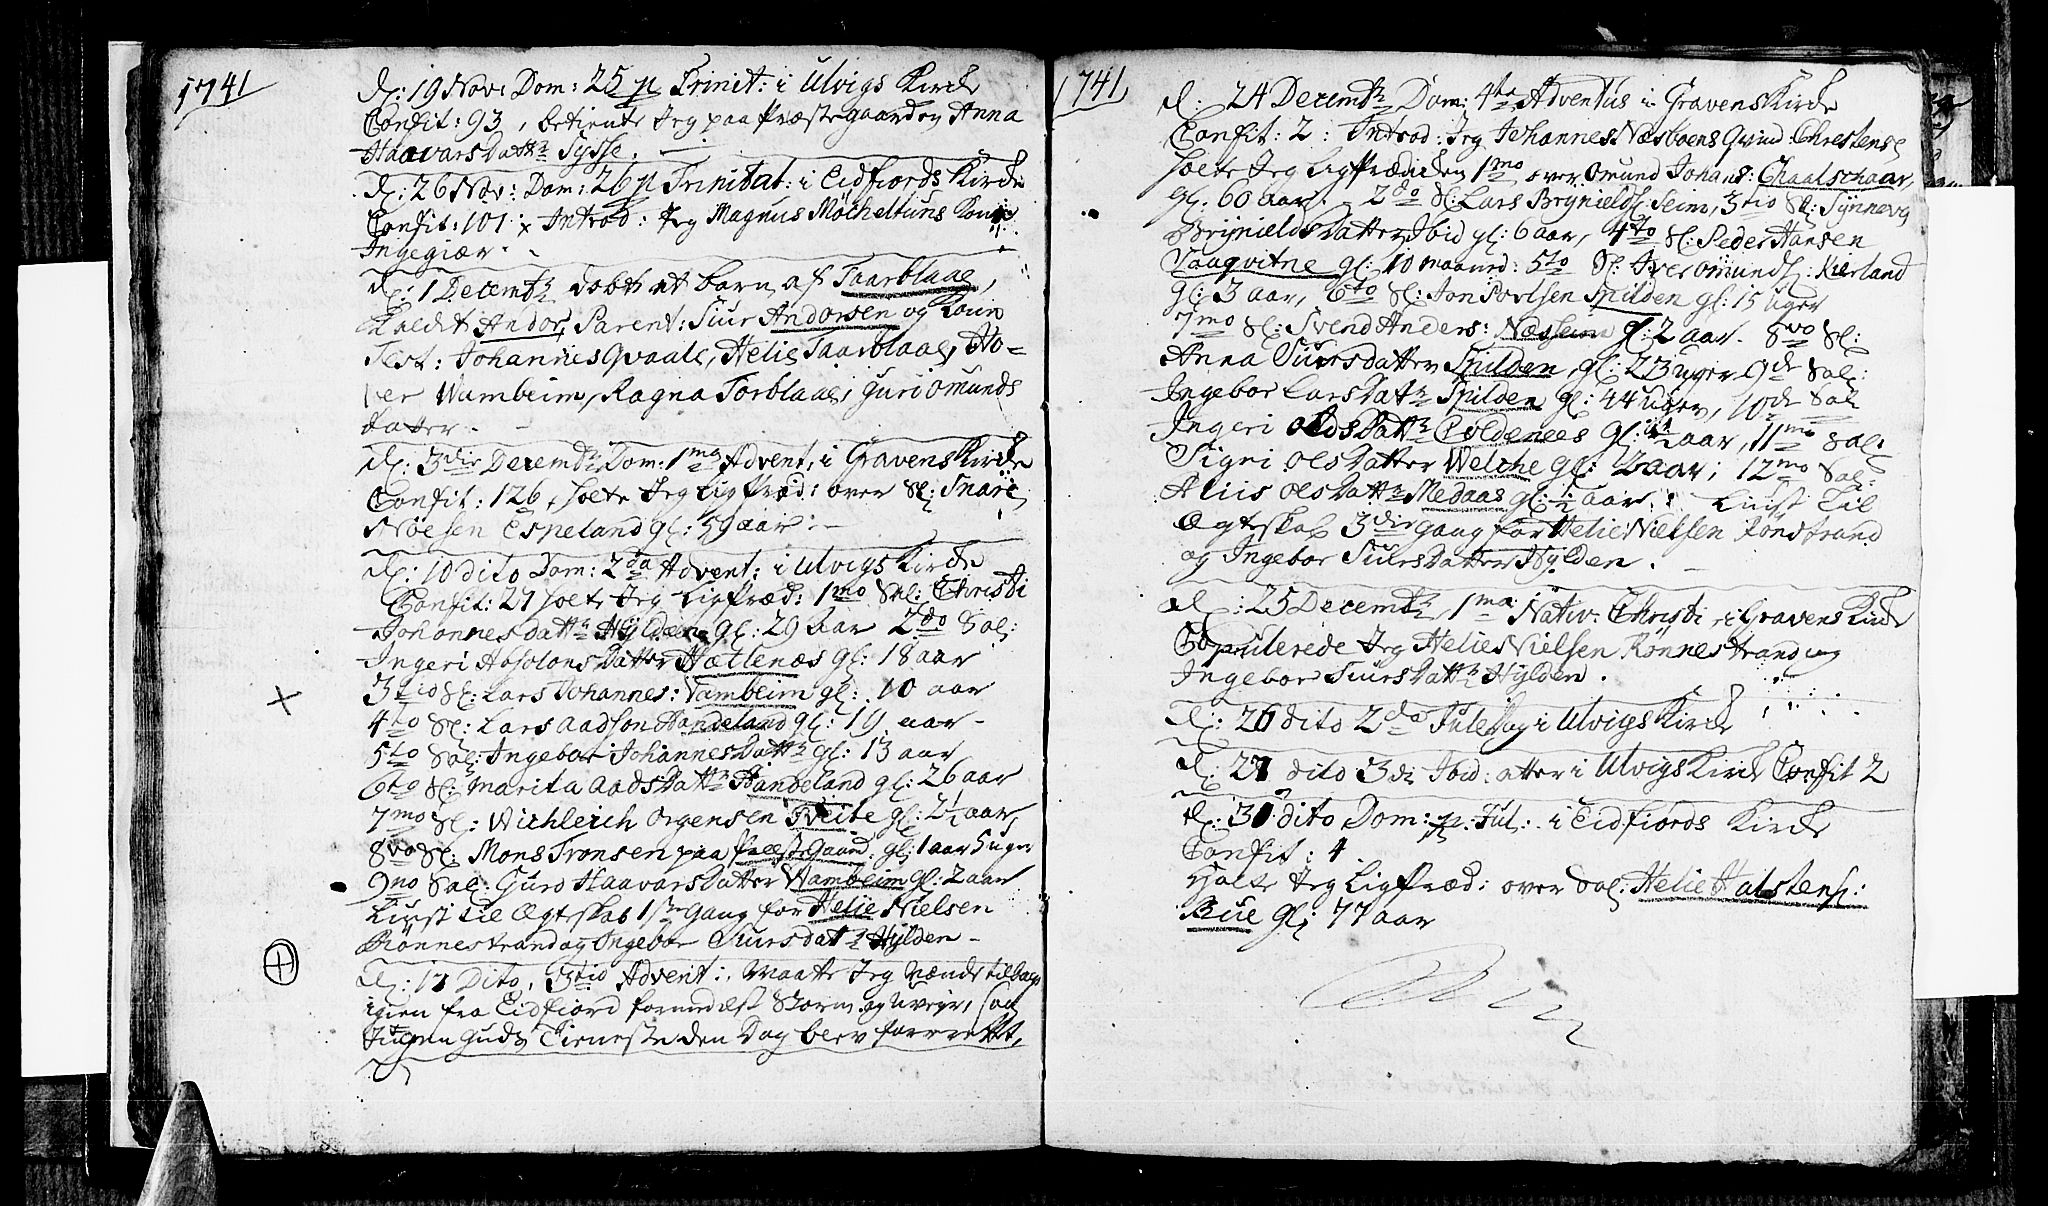 1741
d: 19 Nov: Dom: 25 p Trinit: i Ulvigs Kirke
Confit: 93, betiente Jeg paa Præstegaarden Anna
Haavarsdattr Sysse.
d: 26 Nov: Dom: 26 p Trinitat: i Eidfiords Kirke
Confit: 101 x Introd: Jeg Magnus Møcheltuns Kone
Ingegiær.
d: 1 Decembr døbt et barn af Taarblaae,
Kaldet Andor, Parent: Siur Andorsen og Kone
Test: Johannes Qvaale, Helie Taarblaae, Ho=
ver Wambeim, Ragna Torblaae, Guri Omunds
datter.
d: 3die Decembr Dom: 1ma Advent, i Gravens Kirke
Confit: 126, holte Jeg Ligpræd: over Sl: Snare
Espeland gl: 59 aar:
d: 10 dito Dom: 2da Advent: i Ulvigs Kirke
Confit: 27 holte Jeg Ligpræd: 1mo Sal: Christi
Johannesdattr Hylden gl: 29 aar 2do Sal:
Ingeri Absolonsdatter Hætlenæs gl: 18 aar
3tio Sl: Lars Johannes: Vambeim gl: 10 aar
4to Sl: Lars Aadson Handeland gl: 19 aar
5to Sal: Ingebor Johannesdattr gl: 13 aar
6to Sl: Marita Aadsdattr Handeland gl: 26 aar
7mo Sl: Wichleich Orgensen Tveite gl: 2½ aar,
8vo Sl: Mons Tronsen paa PræsteGaard: gl: 1 aar 5 uger
9no Sal: Guro Haavarsdatter Wambeim gl: 2 aar
Liust til Ægteskab 1ste Gang for Helie Nielsen
Rönnestrand og Ingebor Siursdatr Hylden
d: 17 Dito, 3tio Advent: Maatte Jeg Vænde tilbage
igien fra Eidfiord formedelst Storm og Uveyr, saa
Ingen Guds Tieneste den Dag blev forrettet,
1741
d: 24 Decembr Dom: 4ta Adventus i Gravens Kirke
Confit: 2: Introd: Jeg Johannes Næsboens Qvind:
holte Jeg Ligprædiken 1mo over Omund Johans: Chaalschaar,
gl. 60 aar. 2do Sl: Lars Brynields: Seim, 3tio Sl: Synneve
Brynieldsdatter Ibid gl: 6 aar, 4to Sl: Peder Hansen
Saaqvitne gl: 10 maaned: 5to Sl: Iver Omunds: Kierland
gl: 3 aar, 6to Sl: Jon Povlsen Spilden gl: 15 uger
7mo Sl: Svend Anders: Næsseim gl: 2 aar. 8vo Sl:
Anna Siursdatter Spilden, gl: 23 uger 9de Sal:
Ingebor Larsdatr Spilden gl: 44 uger, 10de Sal
Ingeri Olsdattr gl: aar, 11mo Sal:
Signi Olsdatter Welche gl: 2 aar; 12mo Sal:
Aliis Olsdattr Medaas gl: ½ aar: Liust til
Ægteskab 3die gang for Helie Nielsen Rönstrand
og Ingebor Siursdatter Hylden.
d: 25 Decembr, 1ma Nativ: Christi, i Gravens Kirke
Copulerede Jeg Helie Nielsen Rønnestrand og
Ingebor Siursdattr Hylden.
d: 26 dito 2da Juledag i Ulvigs Kirke
d: 27 dito 3de Ibid: atter i Ulvigs Kirke Confit 2
d: 30 dito Dom: p. Jul: i Eidfiords Kirke
Confit: 4
Holte Jeg Ligpræd: over Sal: Helie Halstens:
Bue gl: 77 aar